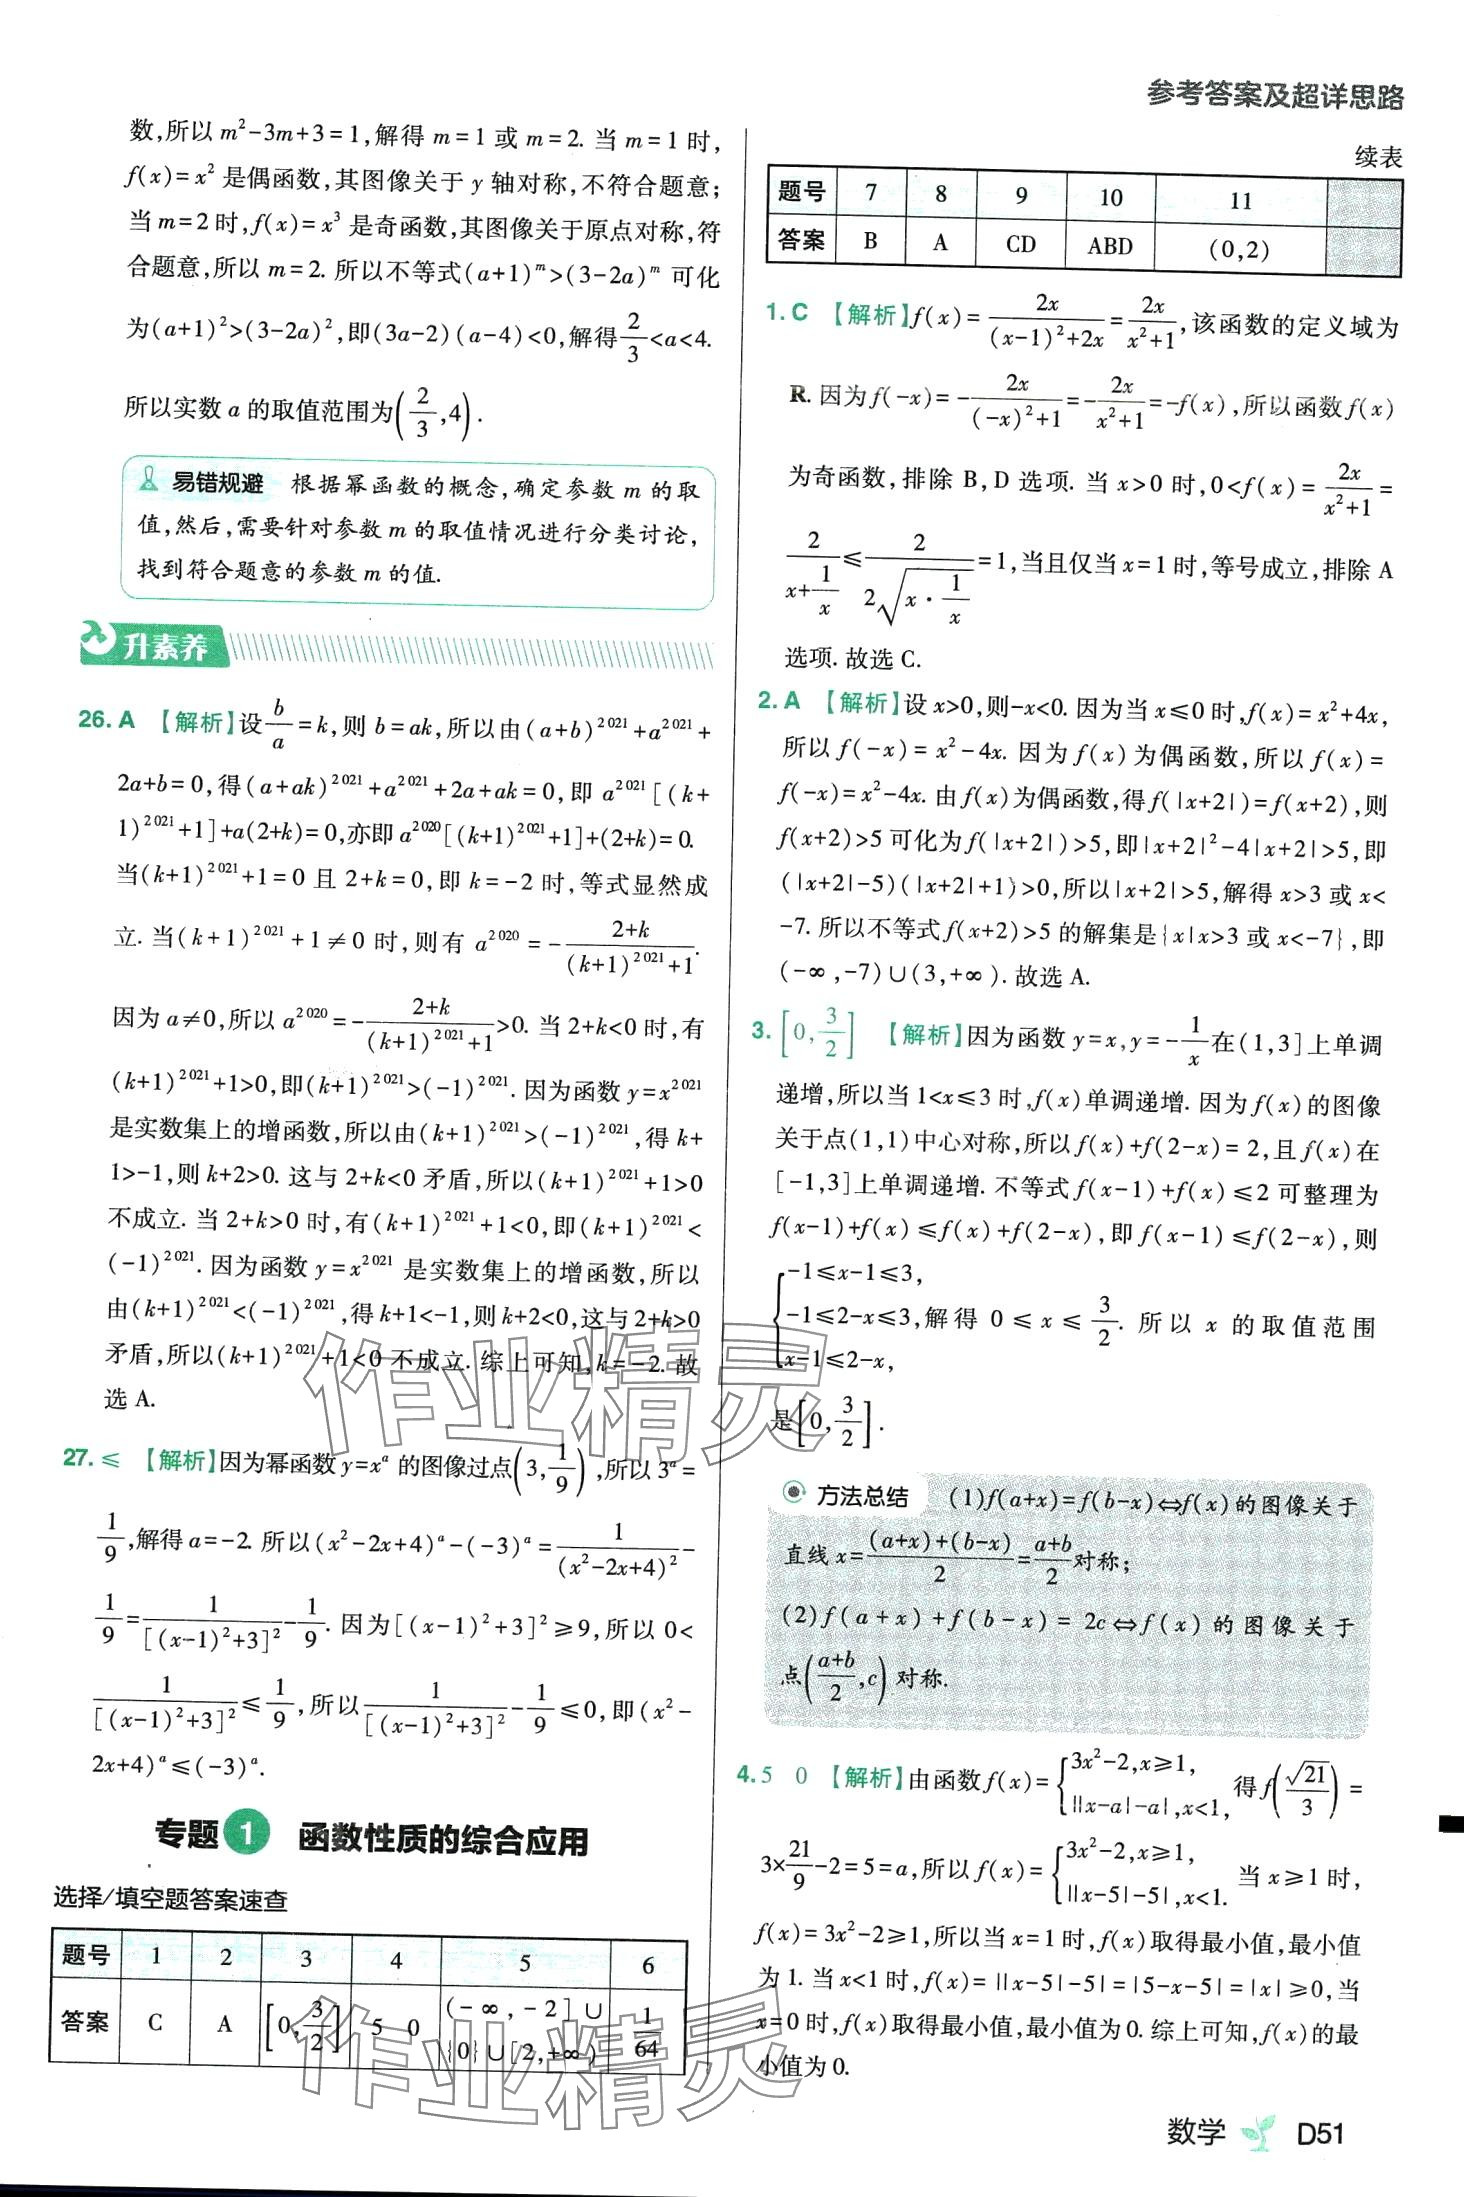 参考答案及超详思路
数,所以 m²-3m+3=1,解得 m=1 或 m=2. 当 m=1 时,
f(x)=x² 是偶函数,其图像关于 y 轴对称,不符合题意;
当 m=2 时,f(x)=x³ 是奇函数,其图像关于原点对称,符
合题意,所以 m=2. 所以不等式(a+1)^m>(3-2a)^m 可化
为(a+1)²>(3-2a)²,即(3a-2)(a-4)<0,解得2/3<a<4.
所以实数 a 的取值范围为(2/3,4).
易错规避 根据幂函数的概念,确定参数 m 的取
值,然后,需要针对参数 m 的取值情况进行分类讨论,
找到符合题意的参数 m 的值.
升素养
26. A 【解析】设b/a=k,则 b=ak,所以由(a+b)^2021+a^2021+
2a+b=0,得(a+ak)^2021+a^2021+2a+ak=0,即 a^2021[(k+
1)^2021+1]+a(2+k)=0,亦即 a^2020[(k+1)^2021+1]+(2+k)=0.
当(k+1)^2021+1=0 且 2+k=0,即 k=-2 时,等式显然成
立. 当(k+1)^2021+1≠0 时,则有 a^2020=-(2+k)/((k+1)^2021+1).
因为 a≠0,所以 a^2020=-(2+k)/((k+1)^2021+1)>0. 当 2+k<0 时,有
(k+1)^2021+1>0,即(k+1)^2021>(-1)^2021. 因为函数 y=x^2021
是实数集上的增函数,所以由(k+1)^2021>(-1)^2021,得 k+
1>-1,则 k+2>0. 这与 2+k<0 矛盾,所以(k+1)^2021+1>0
不成立. 当 2+k>0 时,有(k+1)^2021+1<0,即(k+1)^2021<
(-1)^2021. 因为函数 y=x^2021 是实数集上的增函数,所以
由(k+1)^2021<(-1)^2021,得 k+1<-1,则 k+2<0,这与 2+k>0
矛盾,所以(k+1)^2021+1<0 不成立. 综上可知,k=-2. 故
选 A.
27. ≤ 【解析】因为幂函数 y=x^a 的图像过点(3,1/9),所以 3^a=
1/9,解得 a=-2. 所以(x²-2x+4)^a-(-3)^a=1/(x²-2x+4)²-
1/9=1/[(x-1)²+3]²-1/9. 因为[(x-1)²+3]²≥9,所以 0<
1/[(x-1)²+3]²≤1/9,所以1/[(x-1)²+3]²-1/9≤0,即(x²-
2x+4)^a≤(-3)^a.
专题 1 函数性质的综合应用
选择/填空题答案速查
题号 1 2 3 4 5 6
答案 C A [0,3/2] 5 0 (-∞,-2]∪{0}∪[2,+∞) 1/64
续表
题号 7 8 9 10 11
答案 B A CD ABD (0,2)
1. C 【解析】f(x)=2x/((x-1)²+2x)=2x/(x²+1),该函数的定义域为
R. 因为 f(-x)=-2x/((-x)²+1)=-2x/(x²+1)=-f(x),所以函数 f(x)
为奇函数,排除 B,D 选项. 当 x>0 时,0<f(x)=2x/(x²+1)=
2/(x+1/x)≤2/(2√(x·1/x))=1,当且仅当 x=1 时,等号成立,排除 A
选项. 故选 C.
2. A 【解析】设 x>0,则-x<0. 因为当 x≤0 时,f(x)=x²+4x,
所以 f(-x)=x²-4x. 因为 f(x)为偶函数,所以 f(x)=
f(-x)=x²-4x. 由 f(x)为偶函数,得 f(|x+2|)=f(x+2),则
f(x+2)>5 可化为 f(|x+2|)>5,即|x+2|²-4|x+2|>5,即
(|x+2|-5)(|x+2|+1)>0,所以|x+2|>5,解得 x>3 或 x<
-7. 所以不等式 f(x+2)>5 的解集是{x|x>3 或 x<-7},即
(-∞,-7)∪(3,+∞). 故选 A.
3. [0,3/2] 【解析】因为函数 y=x,y=-1/x在(1,3]上单调
递增,所以当 1<x≤3 时,f(x)单调递增. 因为 f(x)的图像
关于点(1,1)中心对称,所以 f(x)+f(2-x)=2,且 f(x)在
[-1,3]上单调递增. 不等式 f(x-1)+f(x)≤2 可整理为
f(x-1)+f(x)≤f(x)+f(2-x),即 f(x-1)≤f(2-x),则
{-1≤x-1≤3,
-1≤2-x≤3,解得 0≤x≤3/2. 所以 x 的取值范围
x-1≤2-x,
是[0,3/2].
方法总结 (1)f(a+x)=f(b-x)⇔f(x)的图像关于
直线 x=((a+x)+(b-x))/2=(a+b)/2对称;
(2)f(a+x)+f(b-x)=2c⇔f(x)的图像关于
点((a+b)/2,c)对称.
4. 5 0 【解析】由函数 f(x)={3x²-2,x≥1, ||x-a|-a|,x<1, 得 f(√21/3)=
3×21/9-2=5=a,所以 f(x)={3x²-2,x≥1, ||x-5|-5|,x<1. 当 x≥1 时,
f(x)=3x²-2≥1,所以当 x=1 时,f(x)取得最小值,最小值
为 1. 当 x<1 时,f(x)=||x-5|-5|=|5-x-5|=|x|≥0,当
x=0 时,f(x)取得最小值,最小值为 0. 综上可知,f(x)的最
小值为 0.
数学 D51
作业精灵
作业精灵